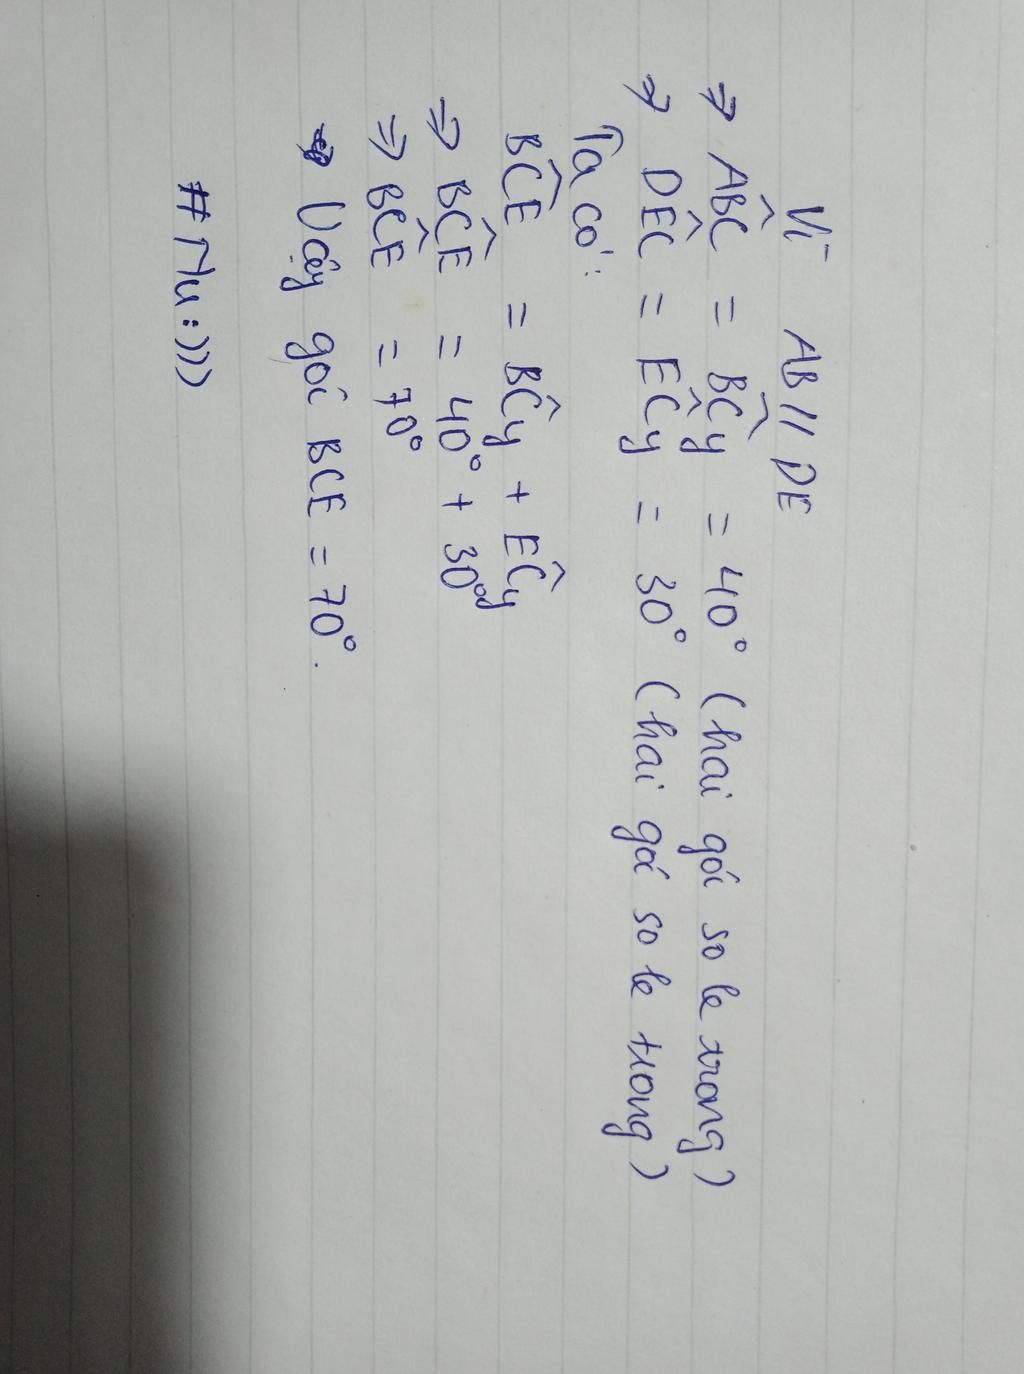 Vì AB // DE
=> ABĈ = BĈy = 40° (hai gói so le trong)
=> DEĈ = EĈy = 30° (hai gói so le trong)
Ta có:
BĈE = BĈy + EĈy
=> BĈE = 40° + 30°
=> BĈE = 70°
Vậy gói BCE = 70°.